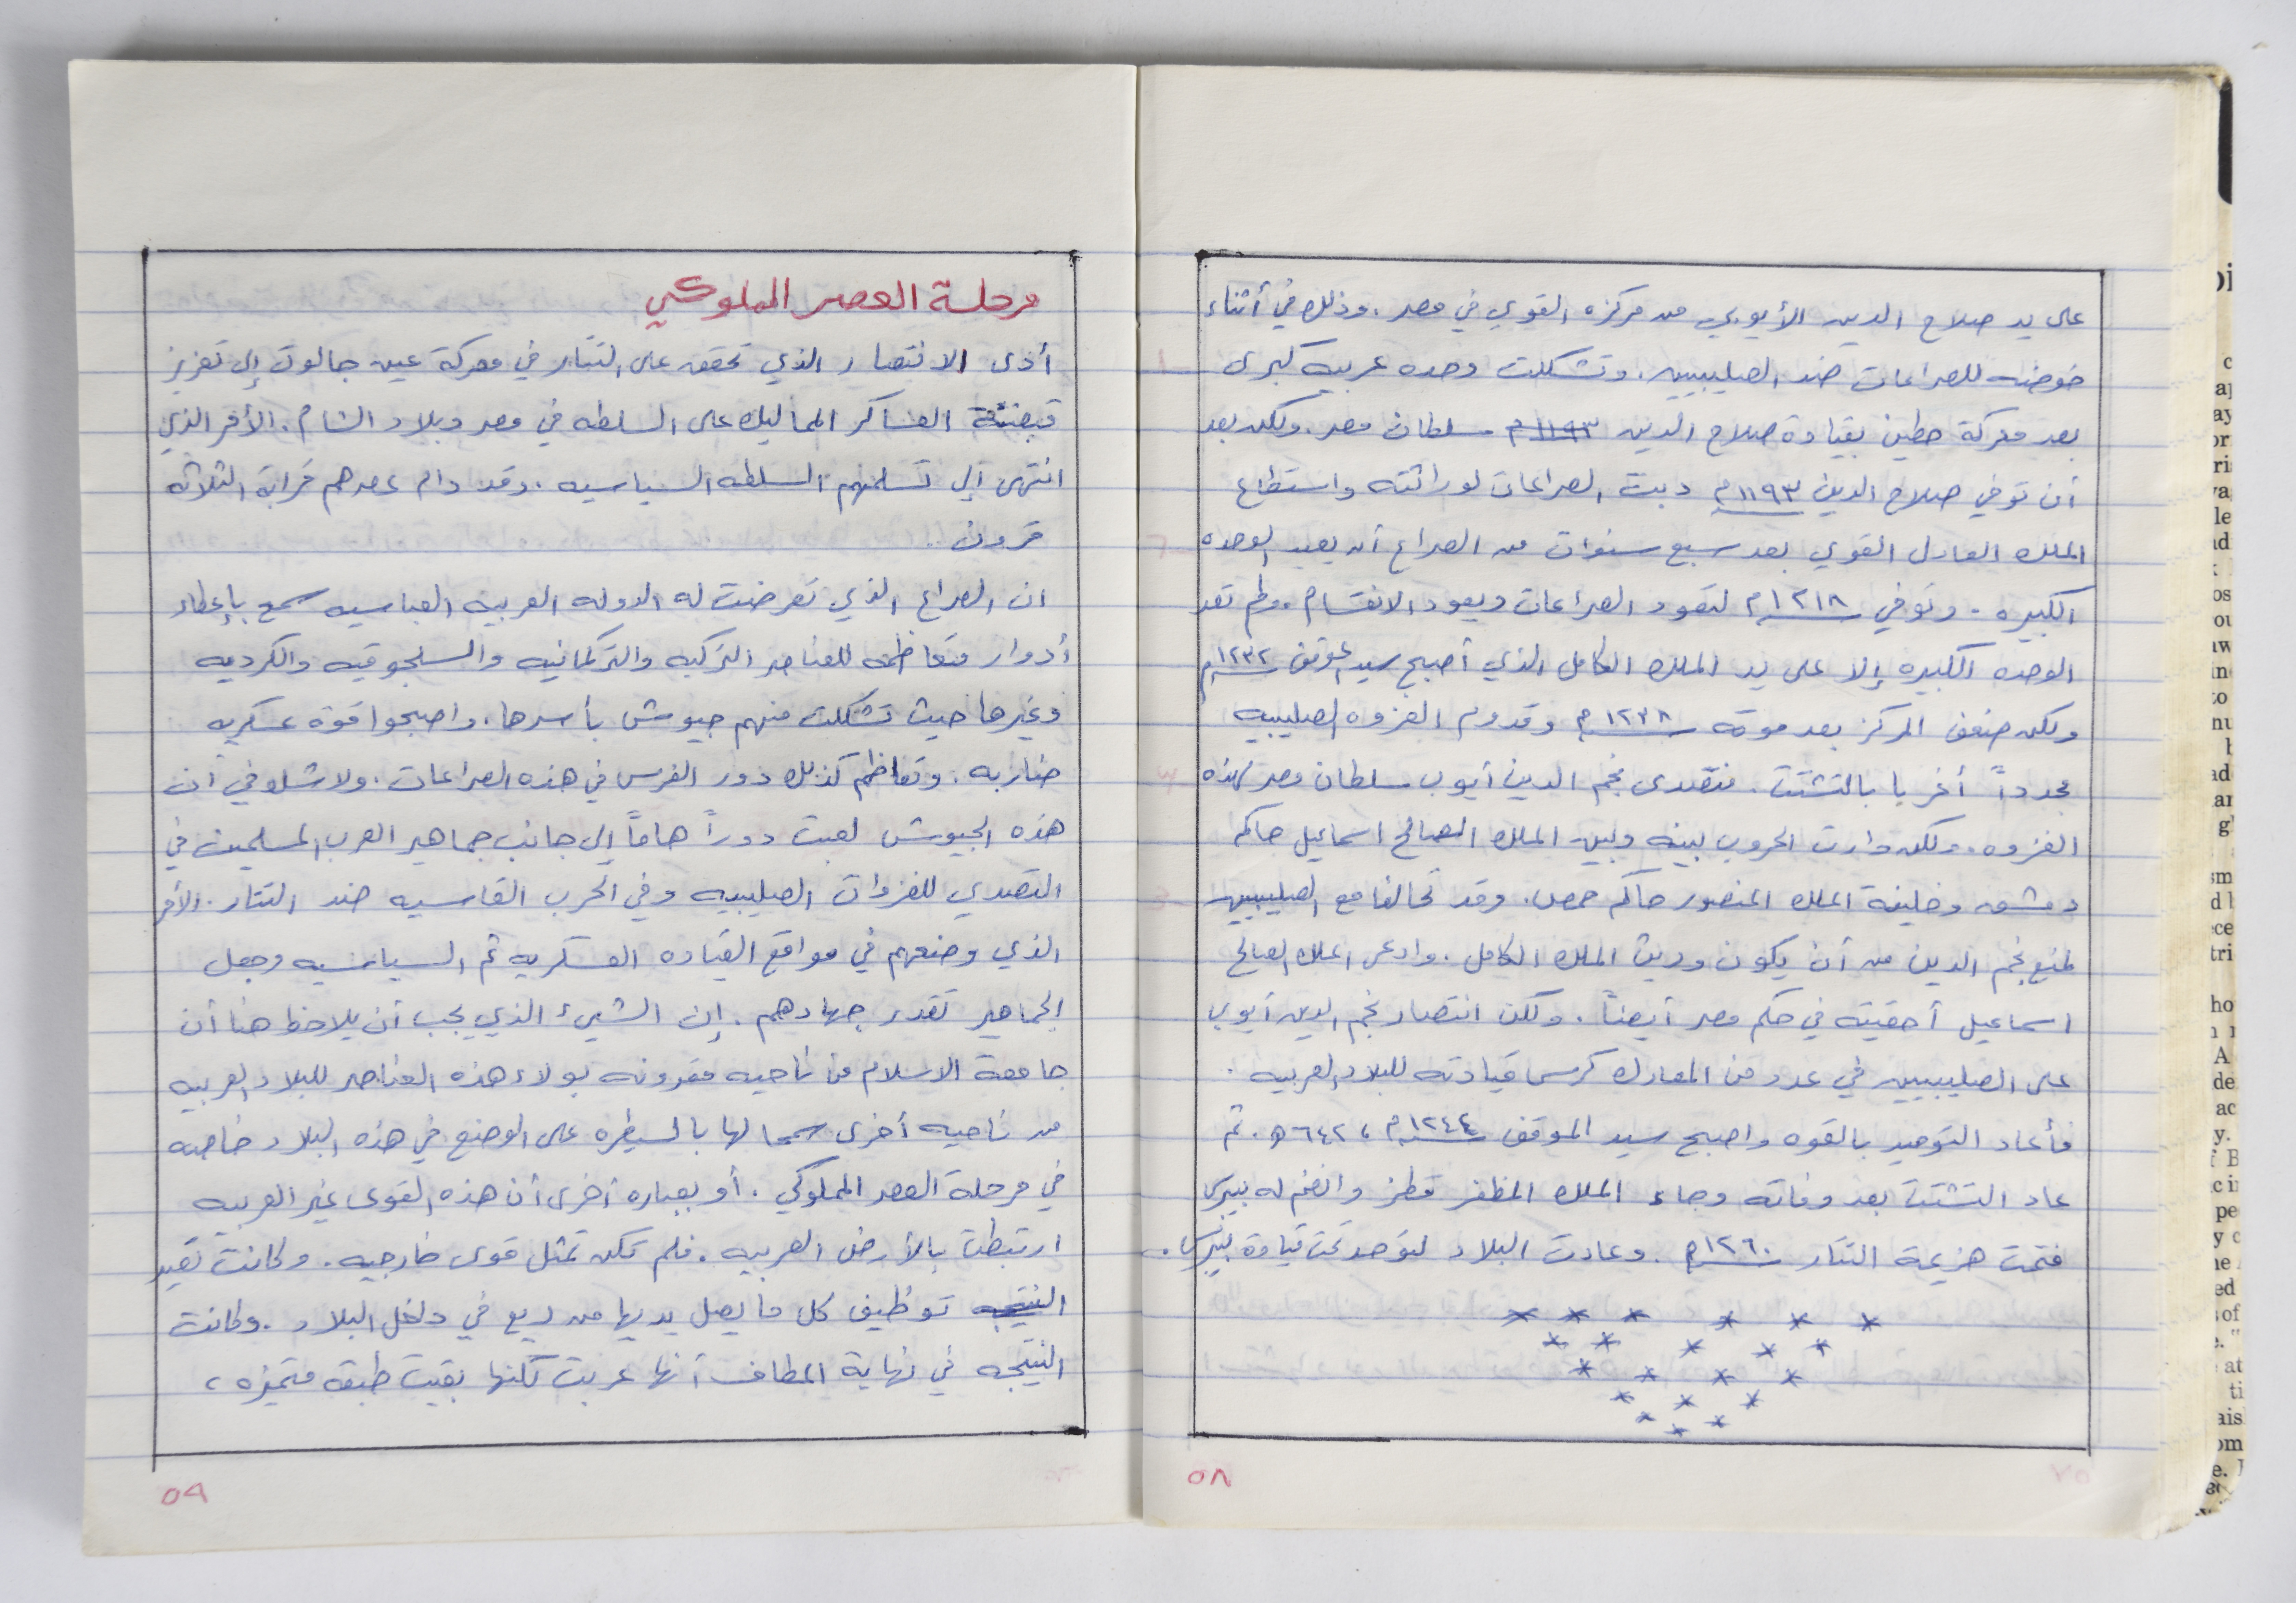 على يد صلاح الدين الأيوبي من مركزه القوي في مصر. وذلك في أثناء
خوضه للصراعات ضد الصليبيين. وتشكلت وحده عربيه كبرى
بعد معركة حطين بقيادة صلاح الدين ١١٩٣م سلطان مصر. ولكن بعد
أن توفي صلاح الدين ١١٩٣م دبت الصراعات لوراثته واستطاع
الملك العادل القوي بعد سبع سنوات من الصراع أن يعيد الوحده
الكبيره. وتوفي ١٢١٨م لتعود الصراعات ويعود الانقسام. ولم تعد
الوحده الكبيره إلا على يد الملك الكامل الذي أصبح سيد الموقف ١٢٣٢م
ولكن ضعف المركز بعد موته ١٢٣٨م وقدوم الغزوه الصليبيه
مجدداً أغريا بالتشتت. فتصدى نجم الدين أيوب سلطان مصر لهذه
الغزوه. ولكن دارت الحروب بينه وبين الملك الصالح اسماعيل حاكم
دمشق وخليفة الملك المنصور حاكم حمص. وقد تحالفا مع الصليبيين
لمنع نجم الدين من أن يكون وريث الملك الكامل. وادعى الملك الصالح
اسماعيل أحقيته في حكم مصر أيضاً. ولكن انتصار نجم الدين أيوب
على الصليبيين في عدد من المعارك كرس قيادته للبلاد العربيه.
فأعاد التوحيد بالقوه واصبح سيد الموقف ١٢٤٤م، ٦٤٢ه. ثم
عاد التشتت بعد وفاته وجاء الملك المظفر قطز وانضم له بيبرس
فتمت هزيمة التتار ١٢٦٠م. وعادت البلاد لتوحد تحت قيادة بيبرس.
٥٨
مرحلة العصر المملوكي
أدى الانتصار الذي تحقق على التتار في معركة عين جالوت إلى تعزيز
قبضة العساكر المماليك على السلطه في مصر وبلاد الشام. الأمر الذي
انتهى إلى تسلمهم السلطه السياسيه. وقد دام عصرهم قرابة الثلاثه
قرون..
ان الصراع الذي تعرضت له الدوله العربيه العباسيه سمح بإعطاء
أدوار متعاظمه للعناصر التركيه والتركمانيه والسلجوقيه والكرديه
وغيرها حيث تشكلت منهم جيوش بأسرها. واصبحوا قوة عسكريه
ضاربه. وتعاظم كذلك دور الفرس في هذه الصراعات. ولا شك في أن
هذه الجيوش لعبت دوراً هاماً إلى جانب جماهير العرب المسلمين في
التصدي للغزوات الصليبيه وفي الحرب القاسيه ضد التتار. الأمر
الذي وضعهم في مواقع القياده العسكريه ثم السياسيه وجعل
الجماهير تقدر جهادهم. إن الشيء الذي يجب أن يلاحظ هنا أن
جامعة الاسلام من ناحيه مقرونه بولاء هذه العناصر للبلاد العربيه
من ناحيه أخرى سمحا لها بالسيطره على الوضع في هذه البلاد خاصه
في مرحلة العصر المملوكي. أو بعباره أخرى أن هذه القوى غير العربيه
ارتبطت بالأرض العربيه. فلم تكن تمثل قوى خارجيه. وكانت تعيد
النتيجه توظيف كل ما يصل يديها من ريع في داخل البلاد. وكانت
النتيجه في نهاية المطاف أنها عربت لكنها بقيت طبقه متميزه،
٥٩